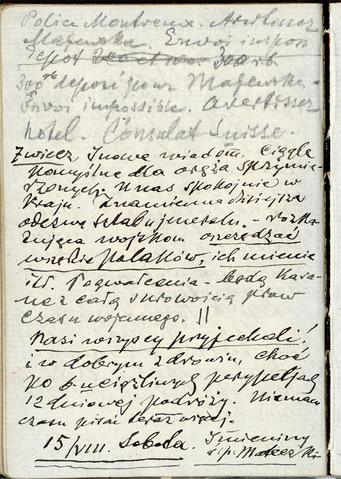 Police Montreux. Avertissez
Majewska. Envoi impos
Depot 300 rb.
300 rb deposé pour Majewska -
Envoi impossible. Avertissez
hotel. Consulat Suisse.
Zwiecz Inowe wiadom. Ciągle
pomyślne dla oręża sprzymie-
rzonych. U nas spokojnie w
kraju. Znamienna dzisiejsza
odezwa sztabu jeneraln. - rozka-
zująca wojskom oszczędzać
wszędzie polaków, ich mienie
itd. Pogwałcenia - będą kara-
ne z całą surowością praw
czasu wojennego. ||
Nasi wszyscy przyjechali!
i w dobrym zdrowiu, choć
po uciążliwych perypetjach
12 dniowej podróży. Niemam
czasu pisać teraz więcej.
15/VIII. Sobota. Imieniny
ś.p. Mateczki